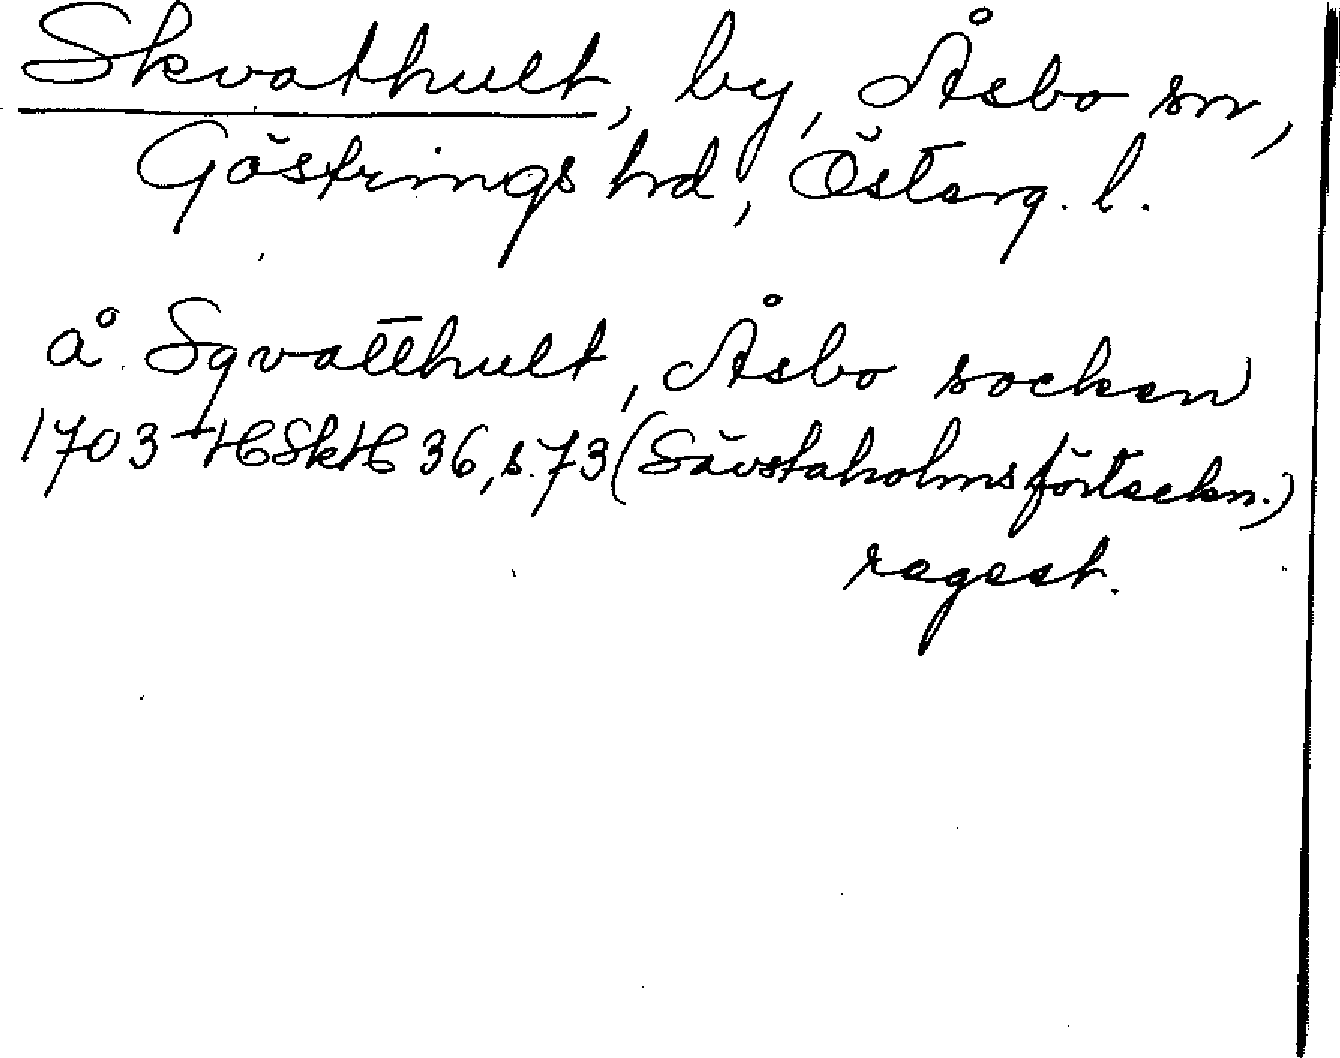 Skvathult, by, Åsbo sn,
Göstrings hrd, Österg. l.
å Sqvatthult, Åsbo socken
1703 HSkH 36, s. 73 (Sävstaholmsförteckn.)
regest.